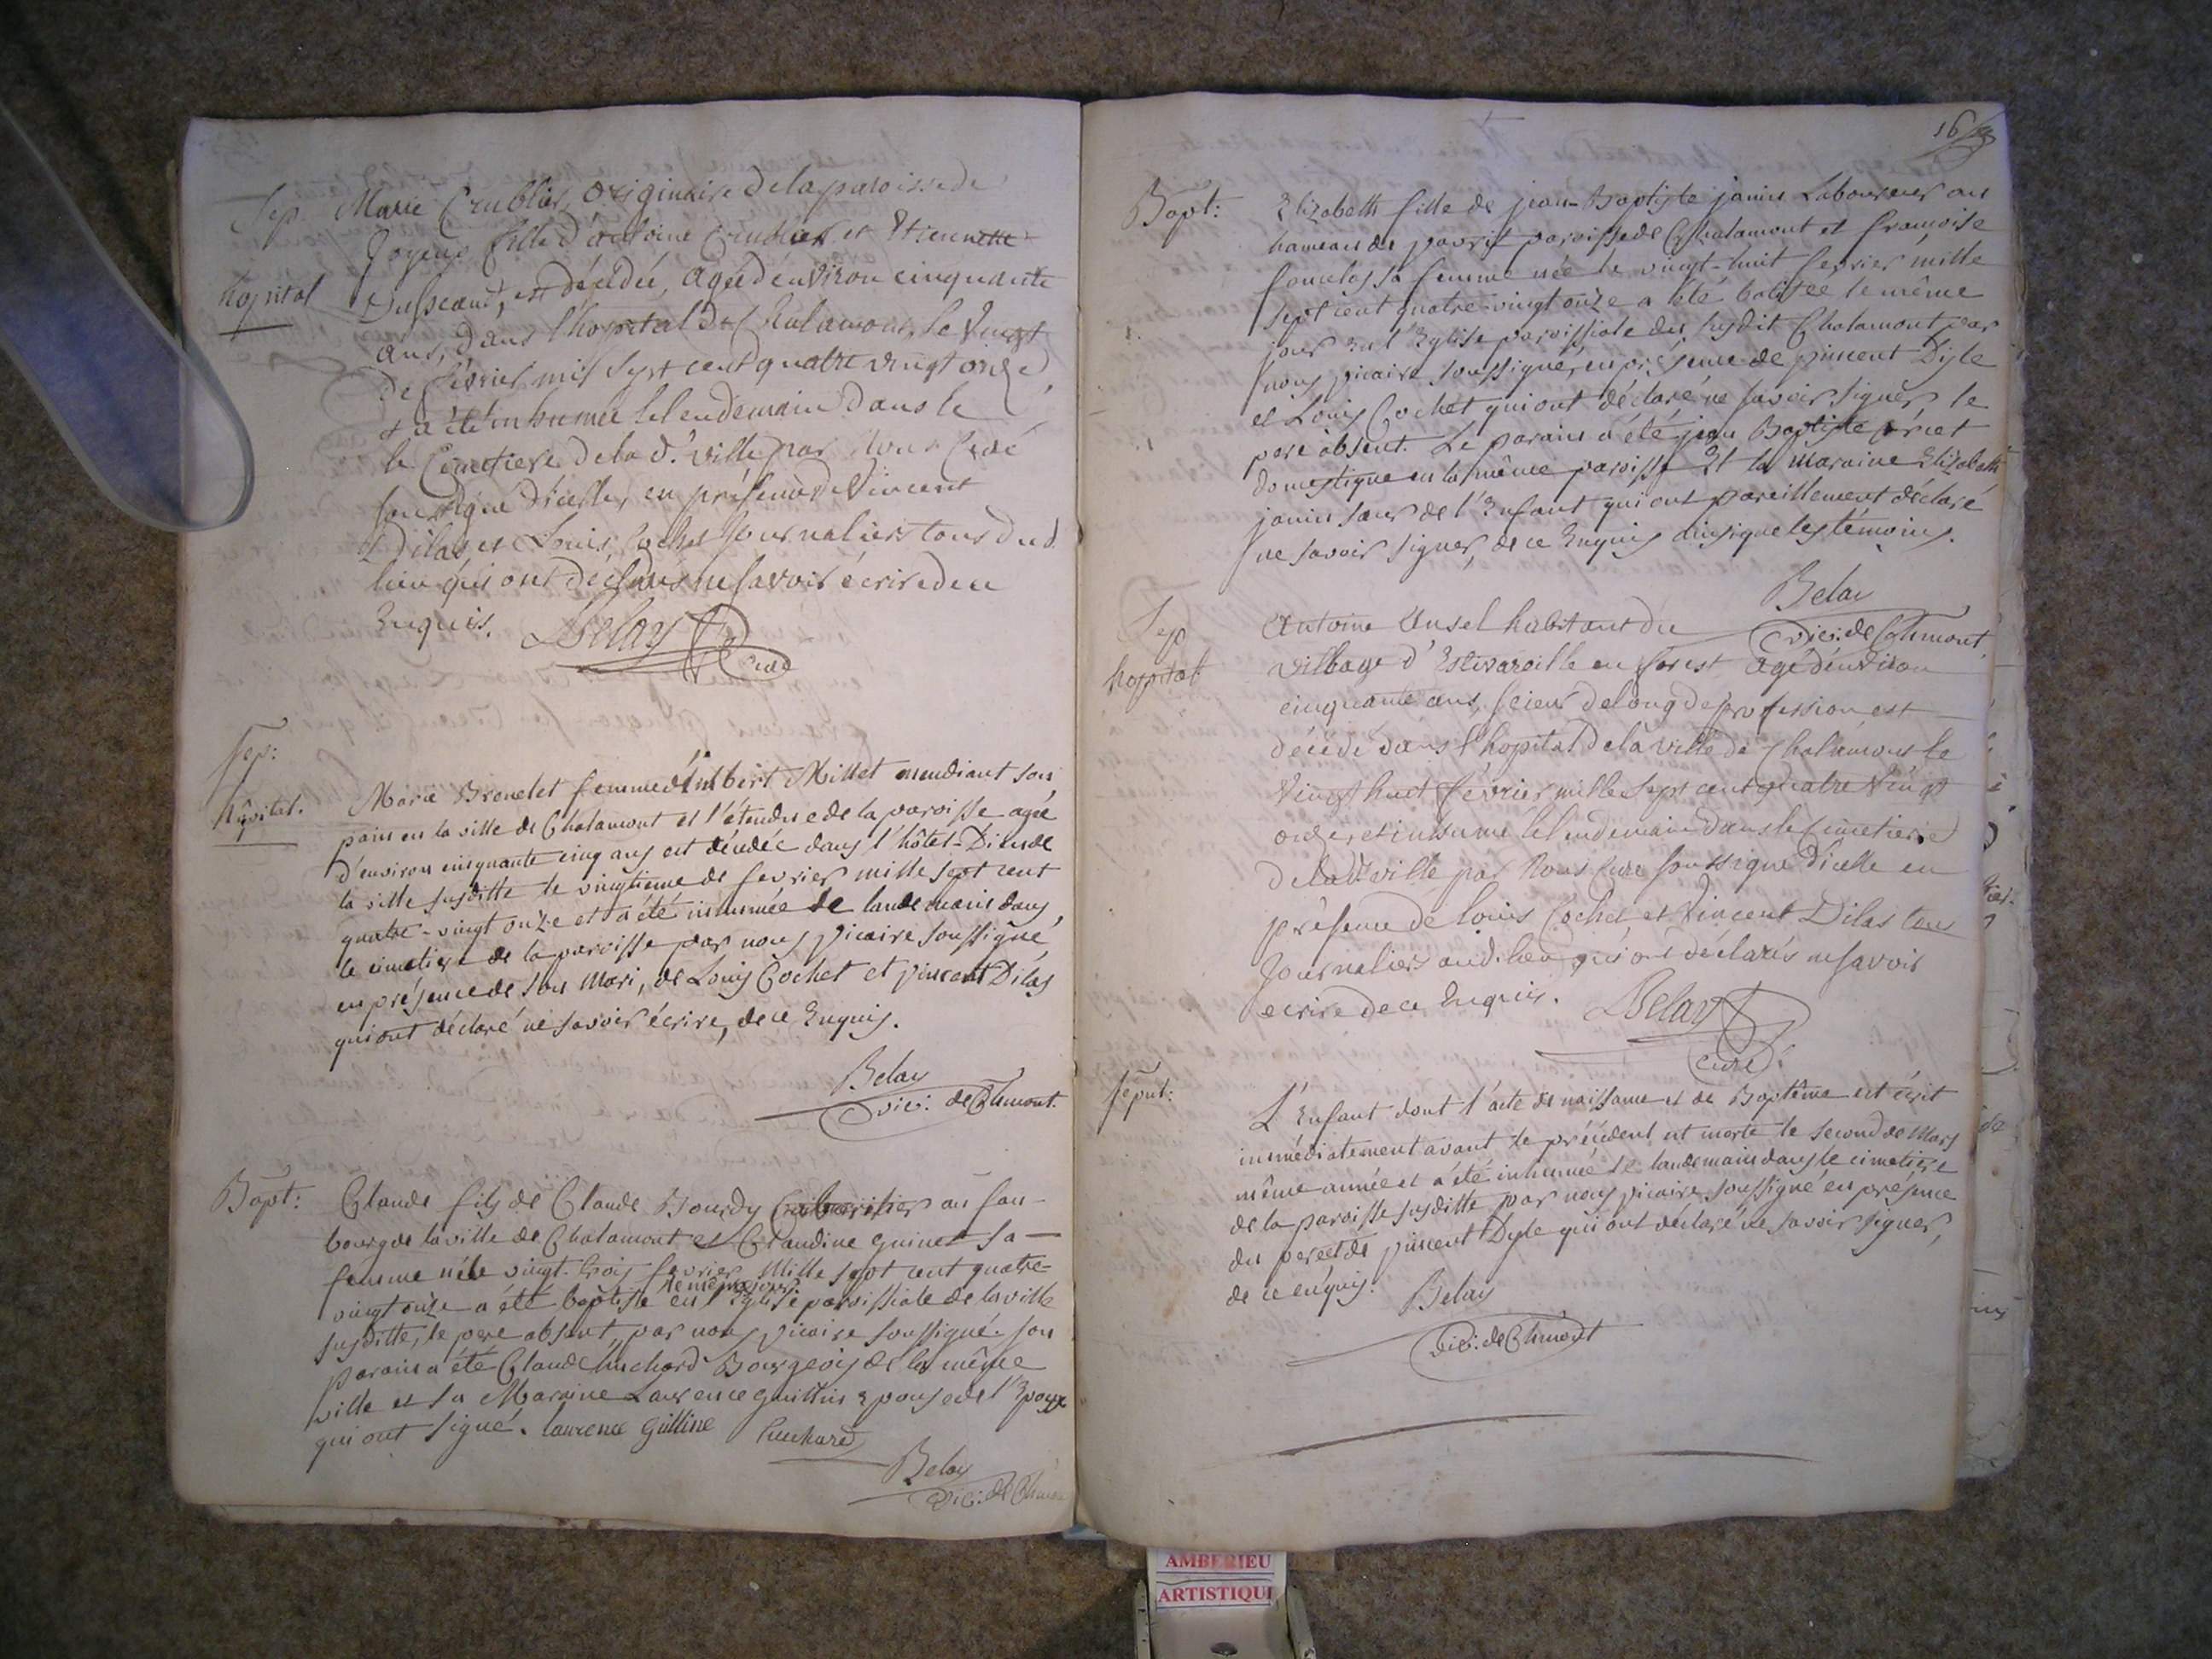 Sep. Marie Crublier, Originaire de la paroisse de
Joyeux fille d'antoine Crublier et Etiennette
hopital
Dusseaud, est décédée, agée d'environ cinquante
ans, dans l'hopital de Chalamont, le vingt
de février mil sept cent quatre vingt onze
et a été inhumée le lendemain dans le
le Cimetiere de la d.e ville par Nous Curé
soussigné d'icelle, en présence de Vincent
Dilas, et Louis Cochet Journaliers tous dud.
lieu qui ont déclarés ne savoir écrire de ce
Enquis. Belay
Curé
Sep:
hôpital.
Marie Brenelet femme d'imbert Millet mendiant son
pain en la ville de Chalamont et l'étendue de la paroisse agée
d'environ cinquante cinq ans est décédée dans l'hôtel-Dieu de
la ville susditte le vingtieme de fevrier mille sept cent
quatre-vingt onze et a été inhumée le landemain dans
le cimetiere de la paroisse par nous vicaire soussigné
en présence de son mari, de Louis Cochet et vincent Dilas
qui ont déclaré ne savoir écrire, de ce Enquis.
Belay
vic: de Chmont.
Bapt: Claude fils de Claude Bourdy au fau-
bourg de la ville de Chalamont et Claudine guinet sa
femme né le vingt-trois fevrier Mille sept cent quatre-
le même jour
vingt onze a été baptisé en l'Eglise paroissiale de la ville
susditte, le pere absent, par nous vicaire soussigné. son
parain a été Claude huchard Bourgeois de la même
ville et sa Maraine Laurence guillin epouse de l'
qui ont signé. laurence Guilline huchard
Belay
vic: de Chmont
16
Bapt: Elizabeth fille de jean-Baptiste janin Laboureur au
hameau de paroisse de Chalamont et françoise
sa femme née le vingt-huit fevrier mille
sept cent quatre-vingt onze a été batisée le même
jour en l'Eglise paroissiale du susdit Chalamont par
nous vicaire soussigné, en présence de vincent Dile
et Louis Cochet qui ont déclaré ne savoir signer le
pere absent. Le parain a été jean Baptiste
domestique en la même paroisse Et la maraine Elizabeth
janin sœur de l'Enfant qui ont pareillement déclaré
ne savoir signer, de ce Enquis ainsi que les témoins.
Belay
vic: de Chmont.
Sep
hopital
Antoine Ansel habitant du
village d'Estivareille en forest agé d'environ
cinquante ans, scieur de long de profession est
décédé dans l'hopital de la ville de Chalamont le
vingt huit février mille sept cent quatre vingt
onze, et inhumé le lendemain dans le Cimetiere
de lad.e ville par Nous Curé soussigné d'icelle en
présence de Louis Cochet et Vincent Dilas tous
Journaliers aud. lieu qui ont déclarés ne savoir
ecrire de ce Enquis. Belay
Curé
Sépul:
L'Enfant dont l'acte de naissance et de Baptême est écrit
immédiatement avant le précédent est morte le second de Mars
même année et a été inhumée le landemain dans le cimetiere
de la paroisse susditte par nous vicaire soussigné en présence
du pere et de vincent Dyle qui ont déclaré ne savoir signer,
de ce enquis. Belay
vic: de Chmont
AMBERIEU
ARTISTIQU